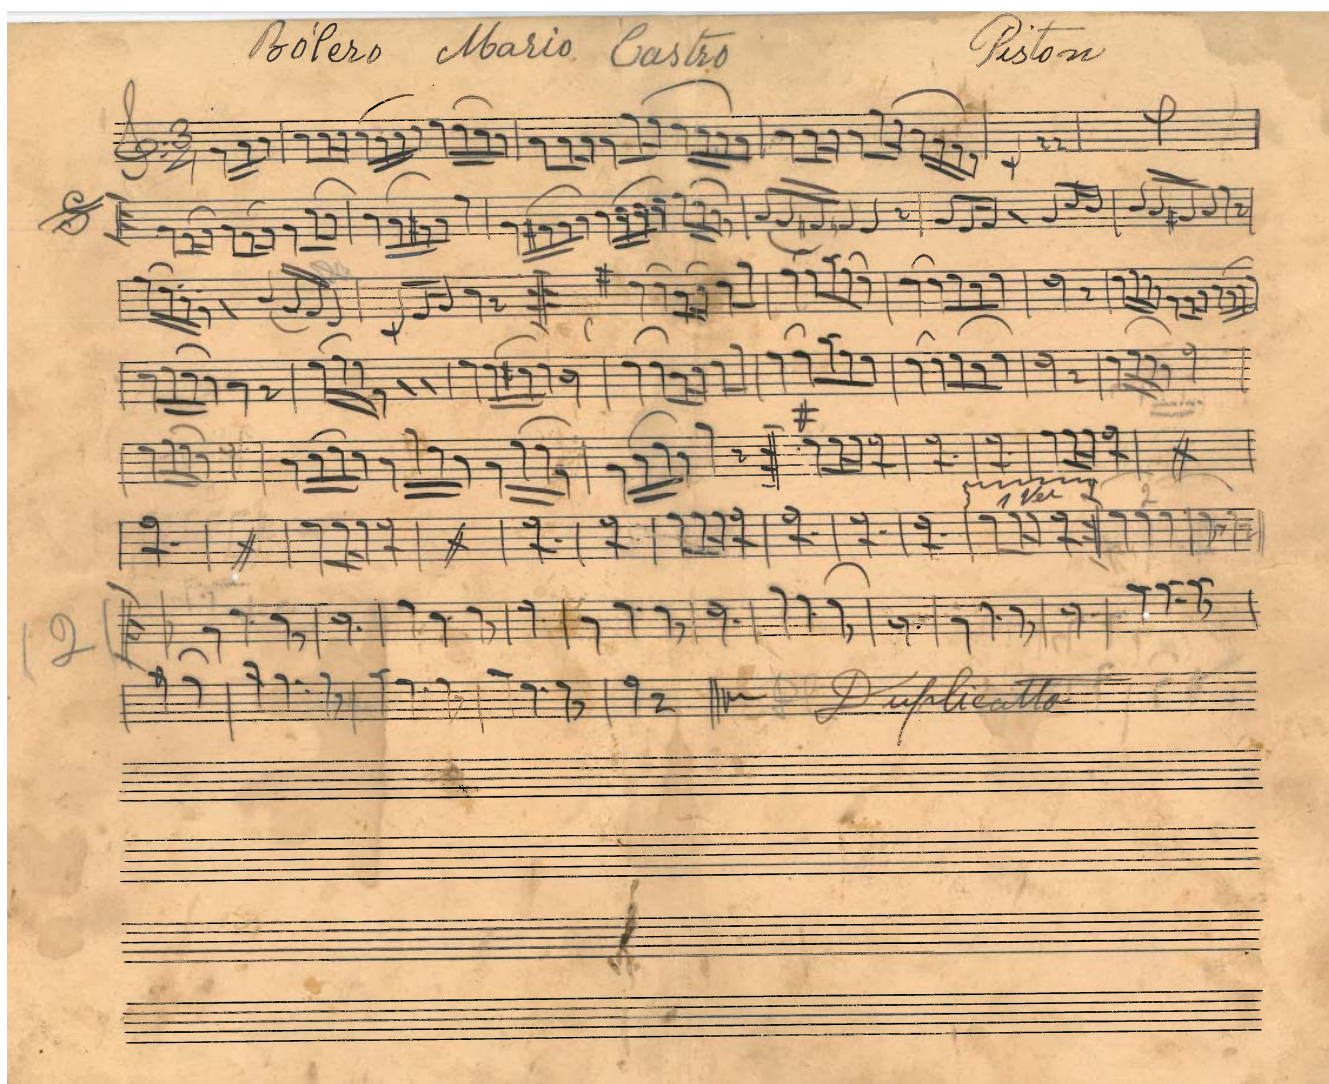 Bólero Mario Castro Piston
3
4
1 Vez 2
2
Duplicatto